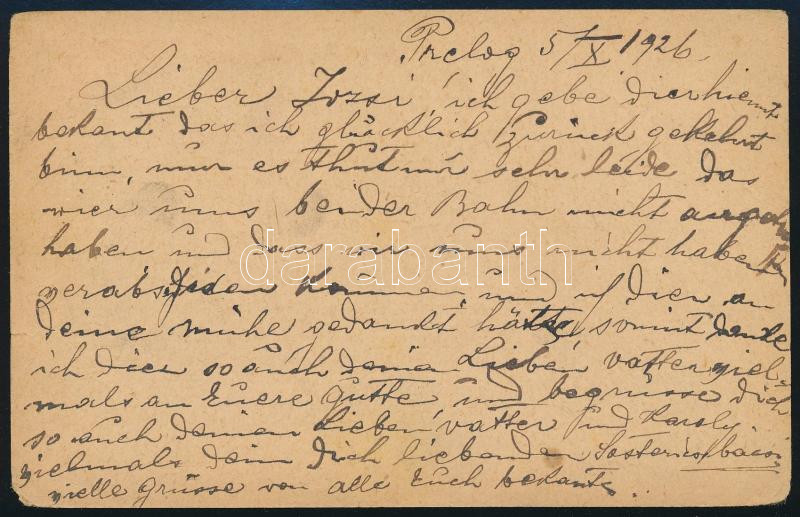 Prelog 5/X 1926.
Lieber Jozsi ich gebe dier hiemit
bekant das ich glücklich zurück gekehrt
binn, nur es thut mir sehr leide das
wier uns bei der Bahn nicht
haben und dass wir uns nicht haben
verabsiden können, und ich dier an
deine mühe gedankt hätte, somit danke
ich dier so auch deinen Lieben vatter viel
mals an Euere gutte und begrüsse dich
so auch deinen Lieben vatter und Karoly
vielmals dein dich liebenden bacsi
vielle grüsse von alle Euch bekante..
darabanth